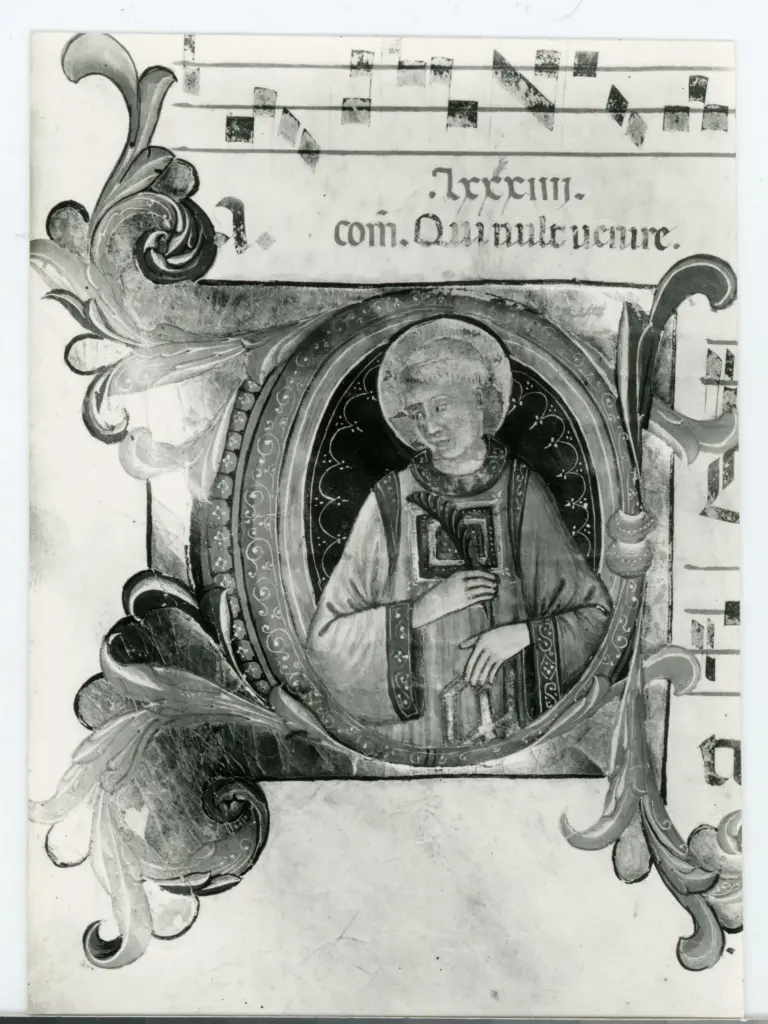 a.
.lxxxiiij.
com̄. Qui uult uenire.
a